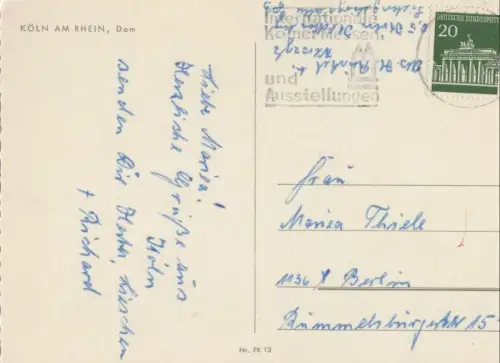 KÖLN AM RHEIN, Dom
Liebe Marica!
Herzliche Grüße aus
Köln
senden Dir Herta, Lieschen
+ Richard
Internationale
Kölner Messen
und
Ausstellungen
DEUTSCHE BUNDESPOST
20
Frau
Marica Thiele
1136 Berlin
Rummelsburgerstr. 15
Nr. FK 13